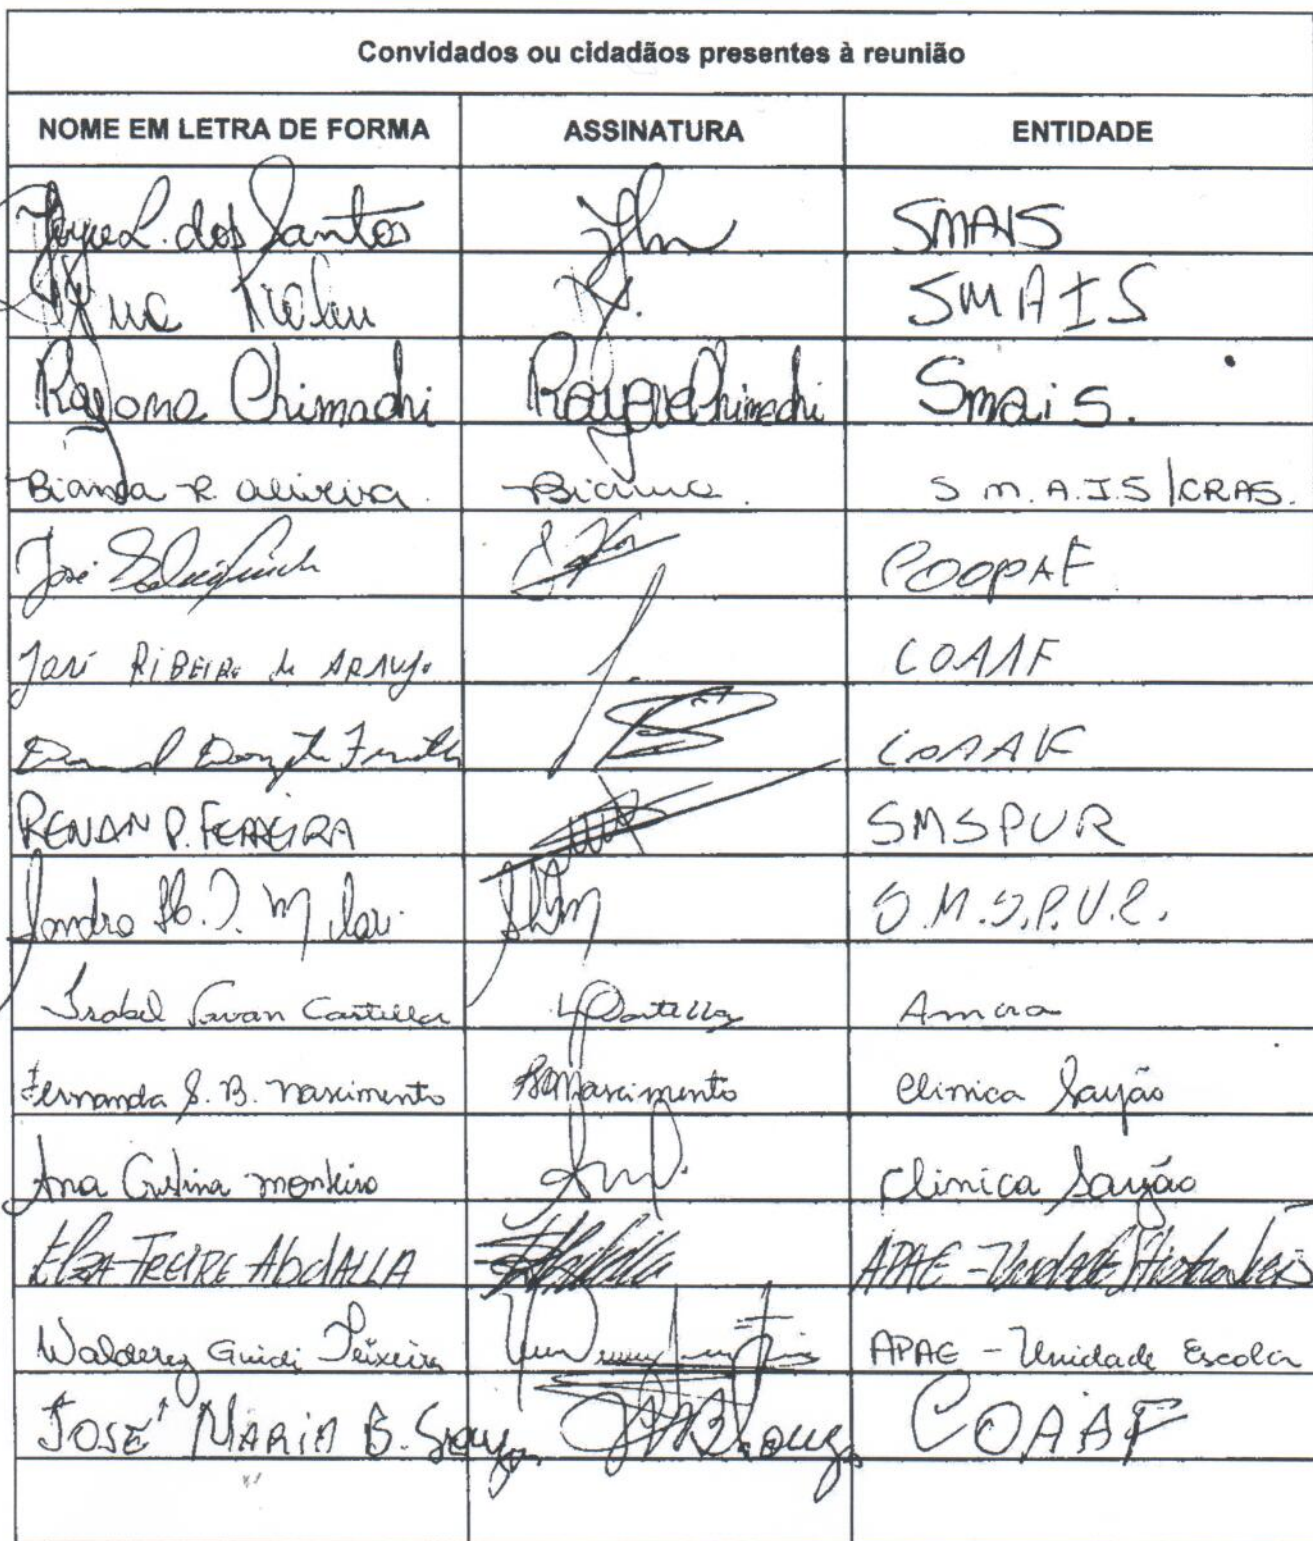 Convidados ou cidadãos presentes à reunião
NOME EM LETRA DE FORMA ASSINATURA ENTIDADE
L. dos Santos SMAIS
SMAIS
Rayana Chimachi Rayana Chimachi Smais.
Bianca R Oliveira. Bianca. S.M.A.I.S/CRAS.
José COOPAF
José RIBEIRO de ARAUJO COAAF
COAAF
RENAN P. FERREIRA SMSPUR
Sandro S.M.S.P.U.R.
Isabel Savan Castilla Castilla Amcra
Fernanda S. B. Nascimento Nascimento Clinica Sayão
Ana Cristina Monteiro Clinica Sayão
Elza FREIRE AbdALLA APAE - Unidade
Walderez Guidi Teixeira APAE - Unidade Escolar
JOSÉ MARIA B. Souza COAAF